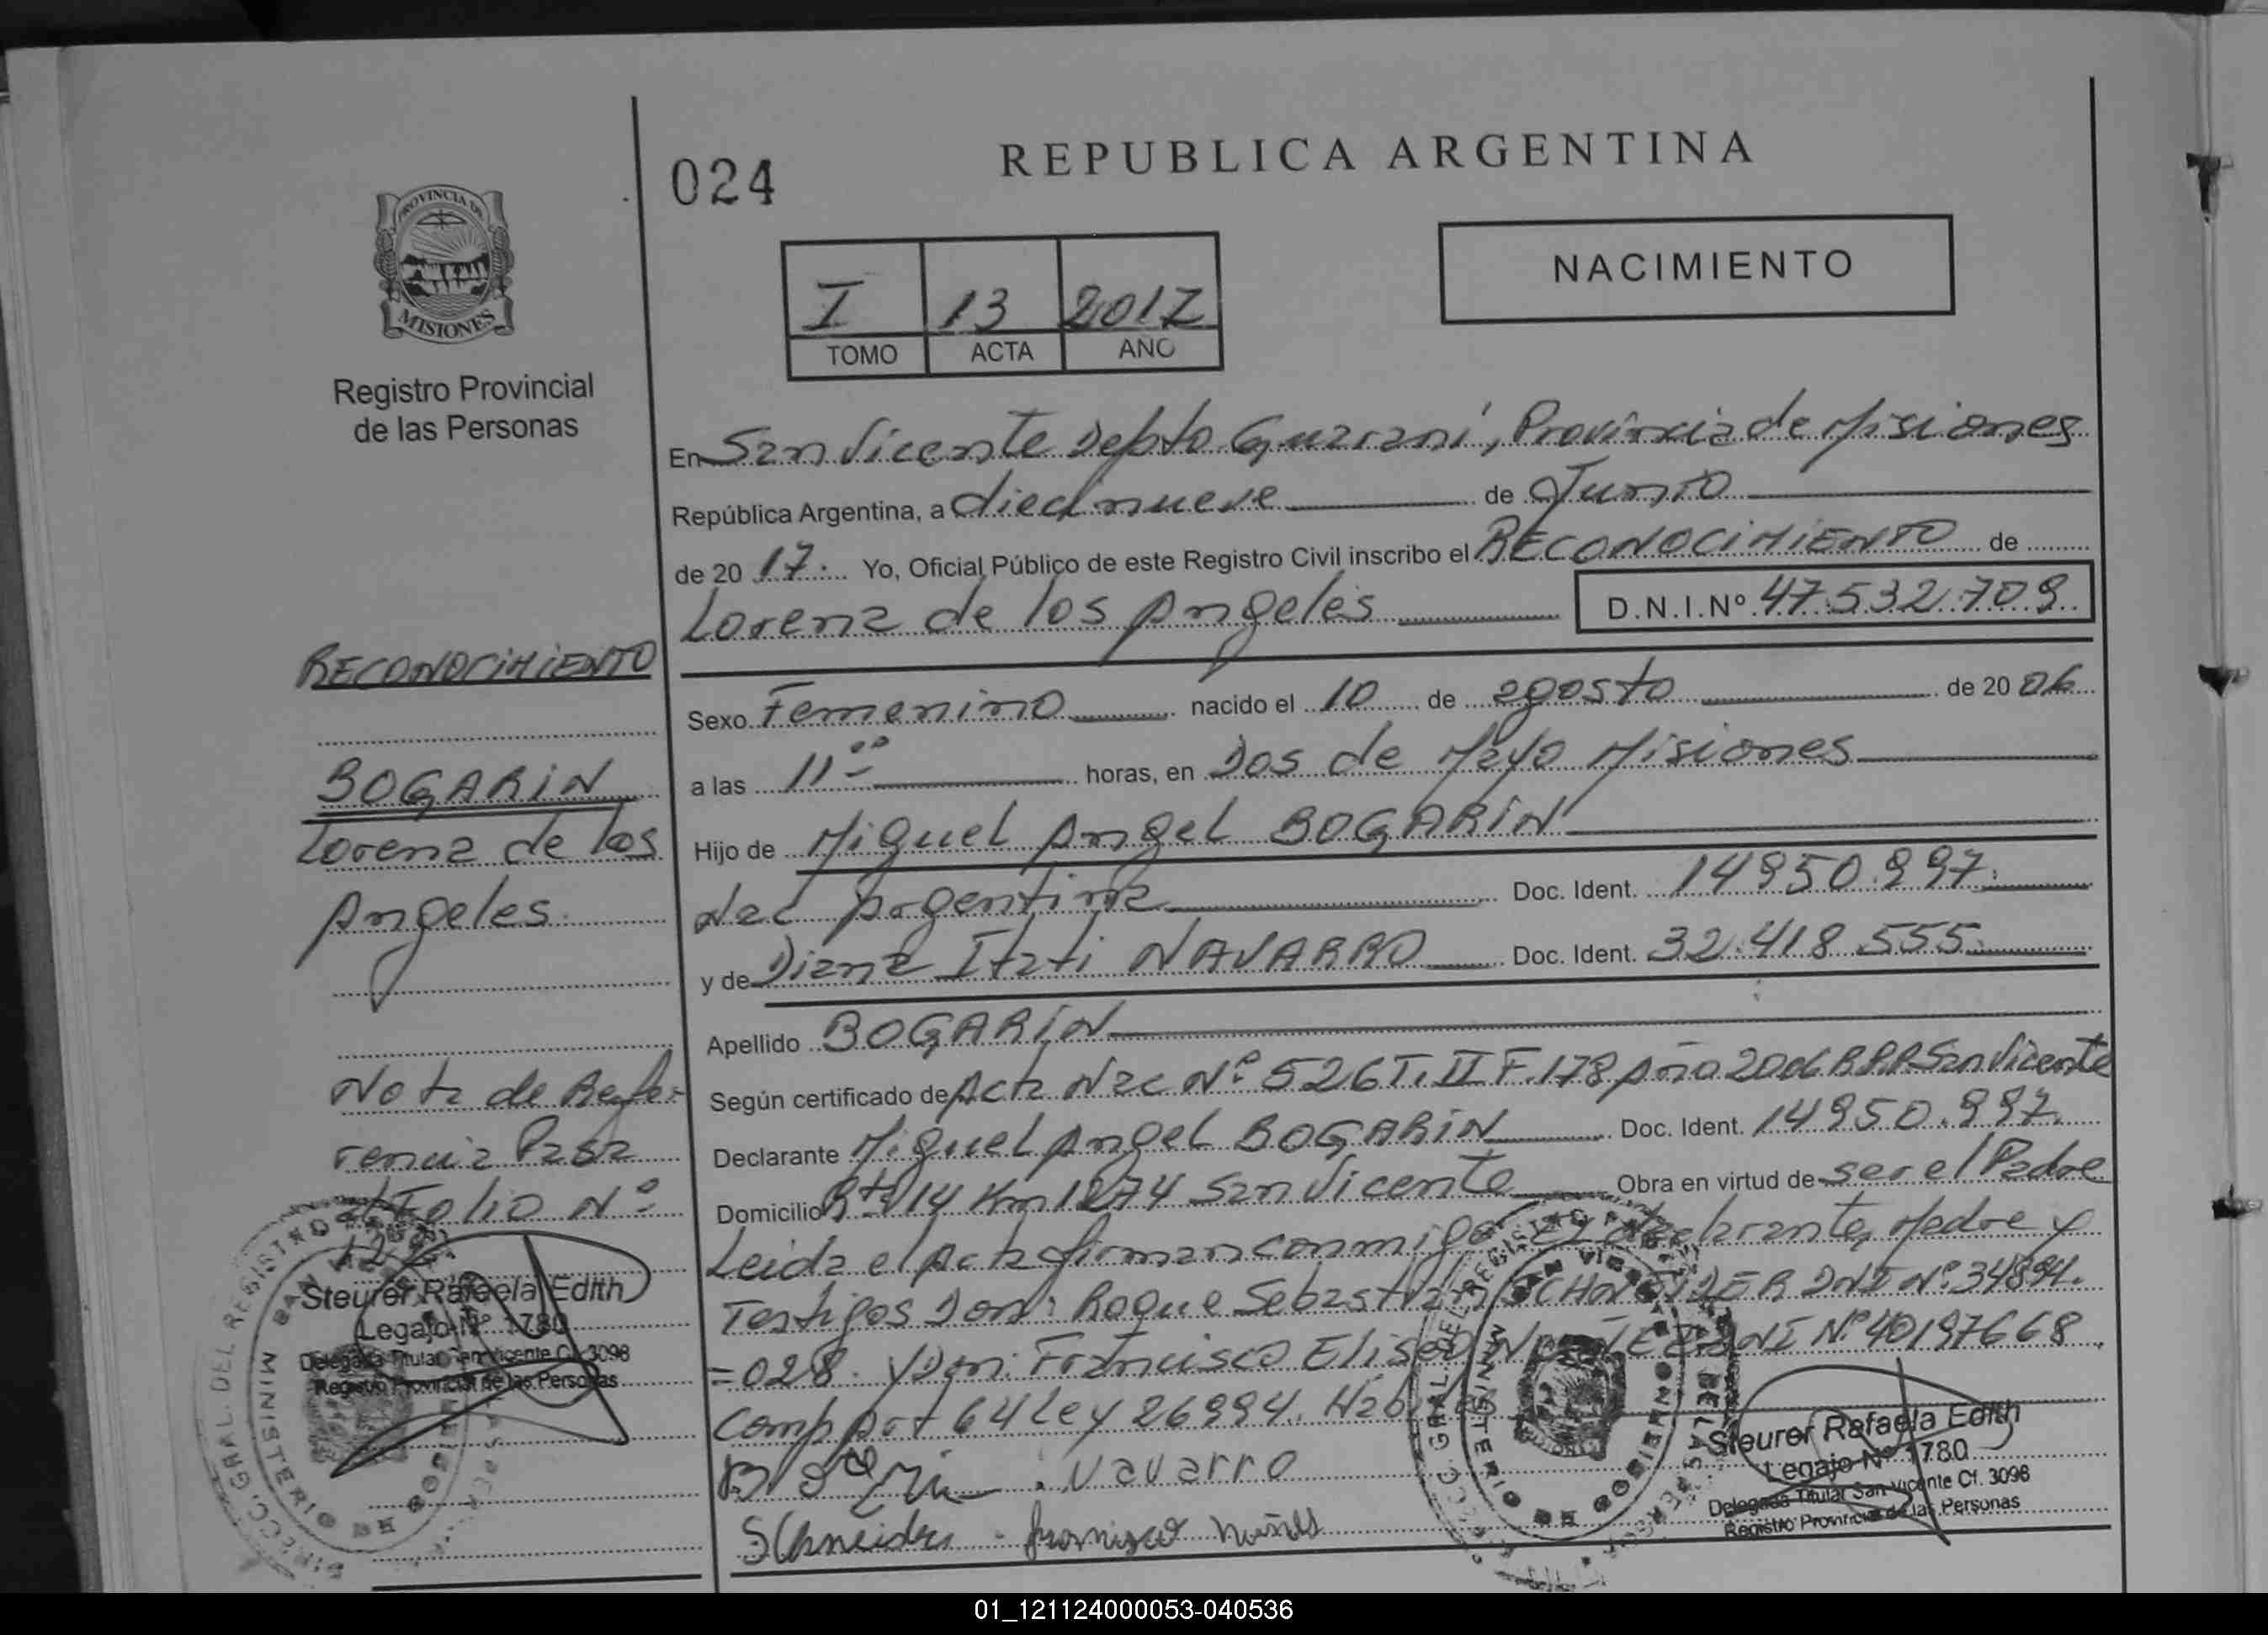 024
REPUBLICA ARGENTINA
PROVINCIA DE
MISIONES
Registro Provincial
de las Personas
I 13 2017
TOMO ACTA AÑO
NACIMIENTO
En San Vicente Depto Guaraní, Provincia de Misiones
República Argentina, a diecinueve de Junio
de 20 17. Yo, Oficial Público de este Registro Civil inscribo el RECONOCIMIENTO de
Lorena de los Angeles D.N.I.Nº 47.532.709.
Sexo Femenino nacido el 10 de agosto de 20 06
a las 11 00 horas, en Dos de Mayo Misiones
Hijo de Miguel Angel BOGARIN
Nac Argentina Doc. Ident. 14950.997.
y de Diana Itati NAVARRO Doc. Ident. 32.418.555.
Apellido BOGARIN
Según certificado de Acta Nac Nº 526 T. II F. 178 Año 2006 R.P.P San Vicente
Declarante Miguel Angel BOGARIN Doc. Ident. 14950.997.
Domicilio Rta 14 Km 1274 San Vicente Obra en virtud de ser el Padre
Leida el Acta firman conmigo El declarante, Madre y
Testigos Don: Roque Sebastian SCHNEIDER DNI Nº 34894.
=028. Y Don: Francisco Eliseo NUÑEZ DNI Nº 40197668.
Comp Art 64 Ley 26994.
Navarro
Schneider - francisco nuñes
RECONOCIMIENTO
BOGARIN
Lorena de los
Angeles
Nota de Refe-
rencia Pasa
al Folio Nº
Steurer Rafaela Edith
Legajo Nº 1780
Delegada Titular San Vicente Cf. 3098
Registro Provincial de las Personas
Steurer Rafaela Edith
Legajo Nº 1780
Delegada Titular San Vicente Cf. 3098
Registro Provincial de las Personas
01_121124000053-040536